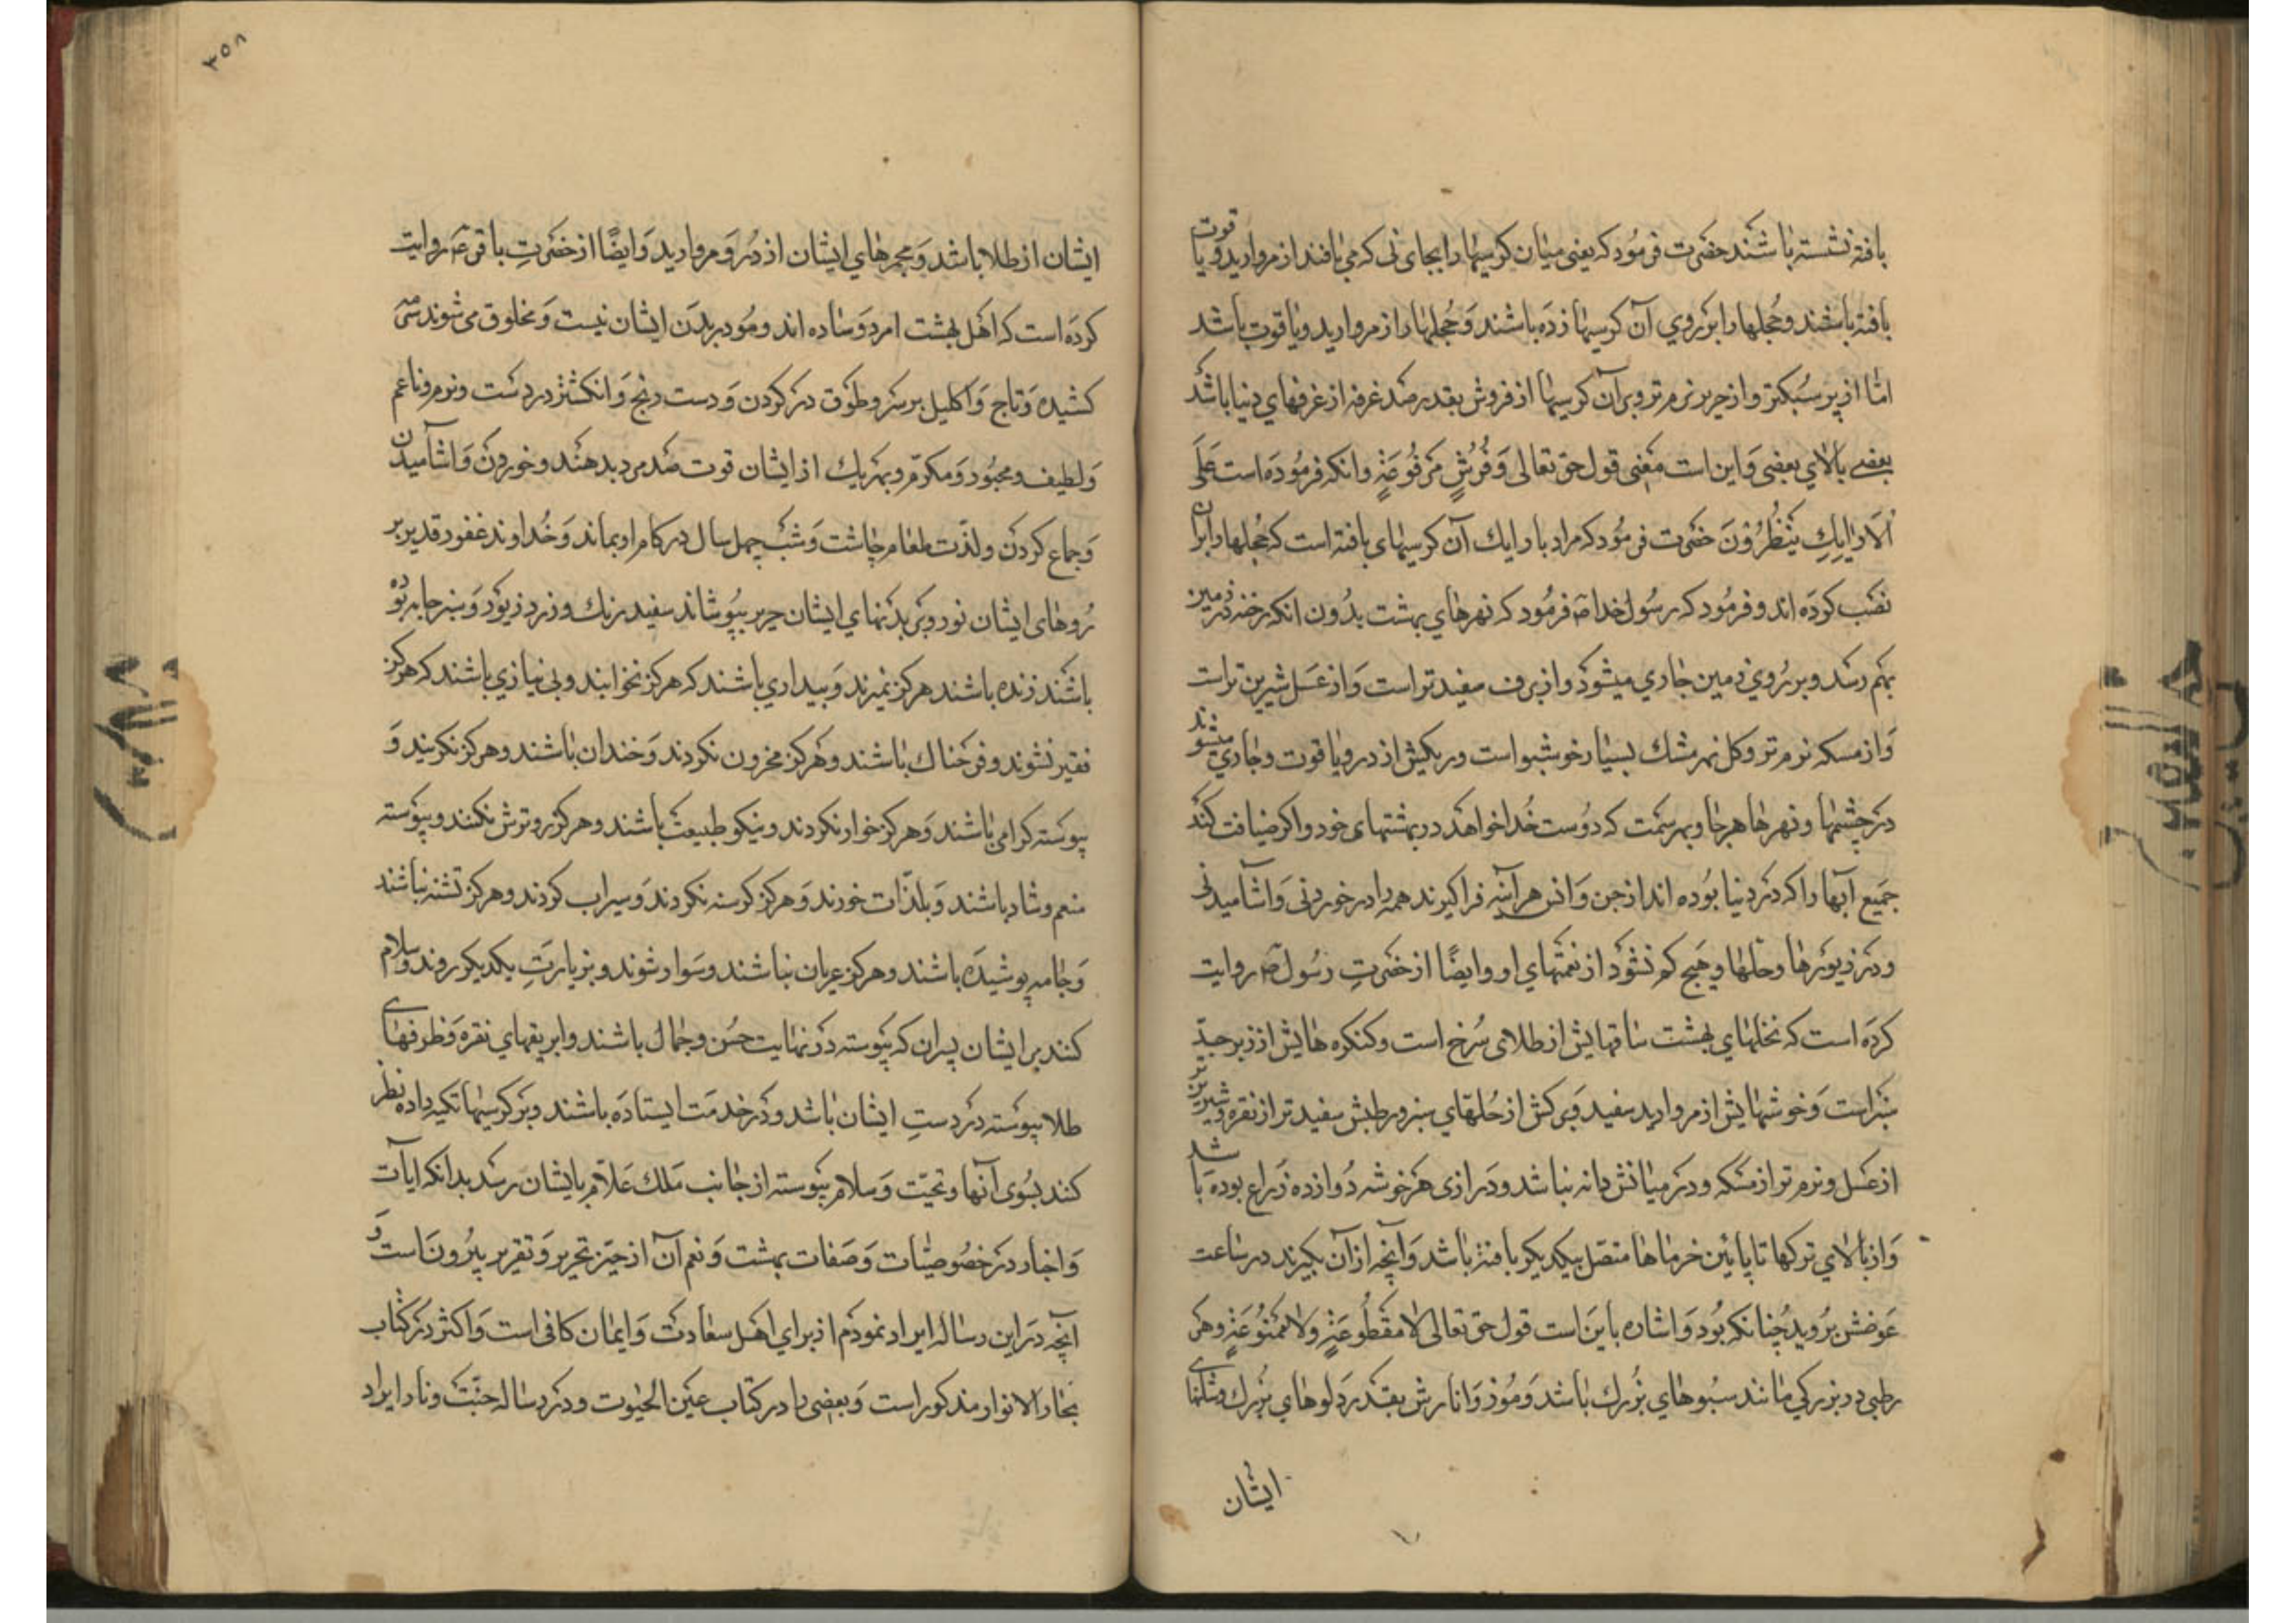 بافته نشسته باشند حضرت فرمود که یعنی میان کرسیها را بجای نی که می بافند از مروارید و یاقوت
بافته باشند و حجلها را بر روی آن کرسیها زده باشند و حجلها را از مروارید و یاقوت باشد
اما از پر سبکتر و از حریر نرم تر و بر آن کرسیها از فروش بقدر صد غرفه از غرفهای دنیا باشد
بعضی بالای بعضی و این است معنی قول حق تعالی وَفُرُشٍ مَرْفُوعَةٍ و انکه فرموده است عَلَی
الْاَرَائِكِ یَنْظُرُوْنَ حضرت فرمود که مراد بارایك آن کرسیهای بافته است که حجلها را بران
نصب کرده اند و فرمود که رسول خدا ص فرمود که نهرهای بهشت بدون انکه رخنه در زمین
بهم رسد و بر روی زمین جاری میشود و از برف سفیدتر است و از عسل شیرین تر است
و از مسکه نرم تر و کل نهر مشك بسیار خوشبو است و ریکش از در و یاقوت و جاری میشوند
در چشمها و نهرها هر جا و بهر سمت که دوست خدا خواهد در بهشتهای خود و اکر ضیافت کند
جمیع آبها را که در دنیا بوده اند از جن و انس هر آینه فراکیرند همه را در خوردنی و اشامیدنی
و در زیورها و حلها و هیچ کم نشود از نعمتهای او و ایضًا از حضرتِ رسول ص روایت
کرده است که نخلهای بهشت ساقهایش از طلای سُرخ است و کنکره هایش از زبرجد
سبز است و خوشهایش از مروارید سفید و برکش از حُلهای سبز و رطبش سفیدتر از نقره و شیرین تر
از عسل و نرم تر از مسکه و در میانش دانه نباشد و درازی هر خوشه دوازده ذراع بوده باشد
و از بالای ترکها تا پایین خرماها متصل بیکدیکر بافته باشد و آنچه از آن بکیرند در ساعت
عوضش بروید چنانکه بود و اشاره باین است قول حق تعالی لا مَقْطُوعَةٍ وَلا مَمْنُوعَةٍ و هر
رطبی در بزرکی مانند سبوهای بزرك باشد و موز و انارش بقدر دلوهای بزرك و شانهای
ایشان
۳۵۸
ایشان از طلا باشد و مجمرهای ایشان از دُر و مروارید و ایضًا از حضرتِ باقر ع روایت
کرده است که اهل بهشت امرد و ساده اند و مو در بدن ایشان نیست و مخلوق می شوند سرمه
کشیده و تاج و اکلیل بر سر و طوق در کردن و دست رنج و انکشتر در دست و نرم و ناعم
و لطیف و محبود و مکرّم و بهر یك از ایشان قوت صد مرد بدهند و خوردن و اشامیدن
و جماع کردن و لذّت طعام چاشت و شب چهل سال در کام او بماند و خداوند غفور قدیر بر
رُوهای ایشان نور و بر بدنهای ایشان حریر بپوشاند سفید رنك و زرد زیور و سبز جامه بوده
باشند زنده باشند هرکز نمیرند و بیداری باشند که هرکز نخوابند و بی نیازی باشند که هرکز
فقیر نشوند و فرحناك باشند و هرکز محزون نکردند و خندان باشند و هرکز نکریند و
پیوسته کرامی باشند و هرکز خوار نکردند و نیکو طبیعت باشند و هرکز رو ترش نکنند و پیوسته
منعم و شاد باشند و بلذّات خورند و هرکز کرسنه نکردند و سیراب کردند و هرکز تشنه نباشند
و جامه پوشیده باشند و هرکز عریان نباشند و سوار شوند و بزیارتِ یکدیکر روند و سلام
کنند بر ایشان پسران که پیوسته در نهایت حسن و جمال باشند و ابریقهای نقره و ظرفهای
طلا پیوسته در دستِ ایشان باشد و در خدمت ایستاده باشند و بر کرسیها تکیه داده نظر
کنند بسوی آنها و تحیّت و سلام پیوسته از جانب مَلك عَلاّم بایشان رسد بدانکه ایات
و اخبار در خصوصیّات و صفات بهشت و نعم آن از حیّز تحریر و تقریر بیرون است و
آنچه در این رساله ایراد نمودم از برای اهل سعادت و ایمان کافی است و اکثر در کتاب
بحار الانوار مذکور است و بعضی را در کتاب عین الحیوت و در رساله جنّت و نار ایراد